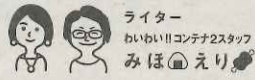 ライター
わいわい!!コンテナ2スタッフ
みほ🍙えり🍇